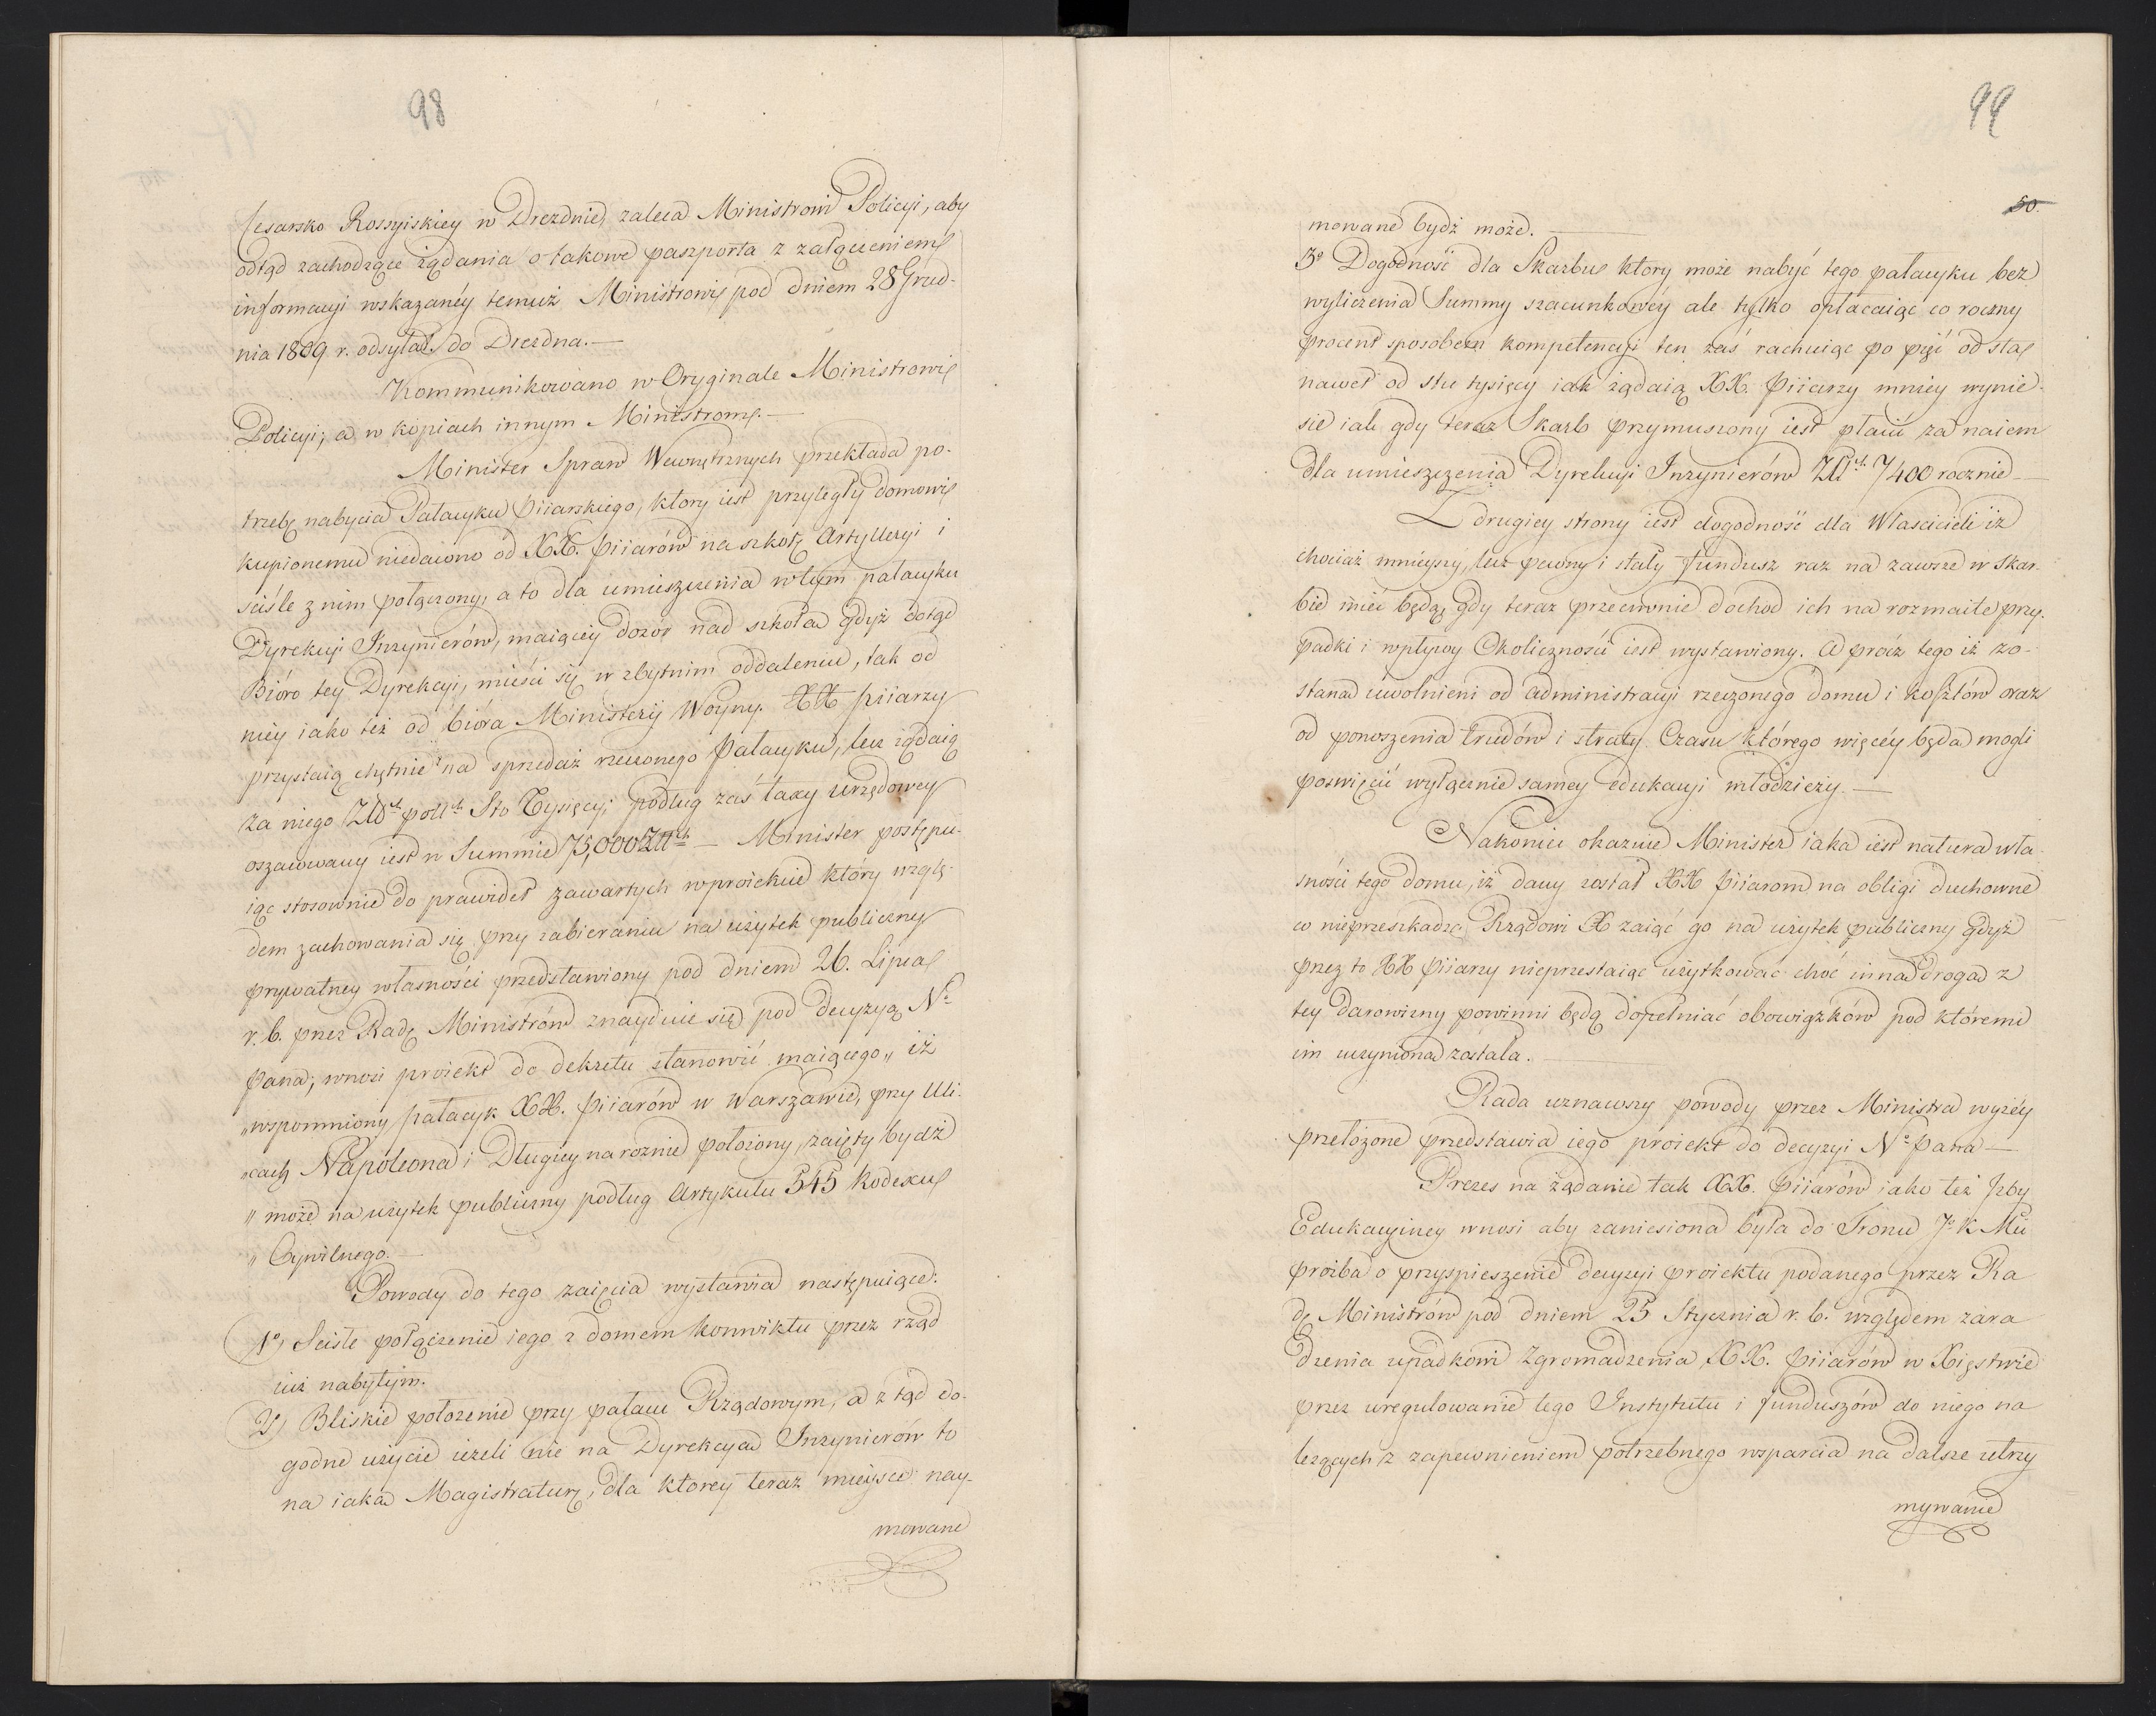 98
Cesarsko Rossyiskiey w Dreznie, zaleca Ministrowi Policyi, aby
odtąd zachodzące żądania o takowe paszporta z załączeniem
informacyi wskazanéy temuż Ministrowi pod dniem 28 Grud-
nia 1809 r. odsyłał do Drezdna.—
Kommunikowano w Oryginale Ministrowi
Policyi; a w kopiach innym Ministrom.—
Minister Spraw Wewnętrznych przekłada po-
trzebę nabycia Pałacyku Piiarskiego, ktory iest przyległy domowi
kupionemu niedawno od XX. Piiarów na szkołę Artylleryi i
ściśle z nim połączony, a to dla umieszczenia w tym pałacyku
Dyrekcyi Inzynierów, maiącéy dozór nad szkołą gdyż dotąd
Bióro tey Dyrekcyi, mieści się w zbytnim oddaleniu, tak od
niéy iako też od bióra Ministeryi Woyny. XX Piiarzy
przystaią chętnie na sprzedaż rzeczonego Pałacyku, lecz żądaią
za niego Złt. poll. Sto Tysięcy; podług zaś taxy urzędowey
oszacowany iest w Summie 75,000 Złt. — Minister postępu-
iąc stosownie do prawideł zawartych w proiekcie który wzglę-
dem zachowania się przy zabieraniu na użytek publiczny
prywatney własności przedstawiony pod dniem 26. Lipca
r. b. przez Radę Ministrów znayduie się pod decyzyą N.
Pana; wnosi proiekt do dekretu stanowić maiącego „ iż
„ wspomniony pałacyk XX. Piiarów w Warszawie, przy Uli-
„ cach Napoleona i Długiey na rożnie położony, zaięty bydź
„ może na użytek publiczny podług Artykułu 545 Kodexu
„ Cywilnego.—
Powody do tego zaięcia wystawia następuiące:
1º, Scisłe połączenie iego z domem Konwiktu przez rząd
iuż nabytym.
2º, Bliskie położenie przy pałacu Rządowym, a z tąd do-
godne użycie ieżeli nie na Dyrekcyą Inzynierów to
na iaką Magistraturę, dla ktorey teraz mieysce nay-
mowane
99
50.
mowane bydź może.—
3º Dogodność dla Skarbu ktory może nabyć tego pałacyku bez
wyliczenia Summy szacunkowéy ale tylko opłacaiąc co roczny
procent sposobem kompetencyi ten zaś rachuiąc po pięć od sta
nawet od stu tysięcy iak żądaią XX. Piiarzy mniéy wynie-
sie iak gdy teraz Skarb przymuszony iest płacić za naiem
dla umieszczenia Dyrekcyi Inzynierów Złt. 7400 rocznie.—
Z drugiey strony iest dogodność dla Własciceli iż
chociaż mnieyszy, lecz pewny i stały fundusz raz na zawsze w Skar-
bie mieć będą, gdy teraz przeciwnie dochod ich na rozmaite przy-
padki i wpływy Okoliczności iest wystawiony. A prócz tego iż zo-
staną uwolnieni od administracyi rzeczonego domu i kosztów oraz
od ponoszenia trudów i straty Czasu którego więcéy będą mogli
poswięcić wyłącznie samey edukacyi młodzieży.—
Nakoniec okazuie Minister iaka iest natura wła-
sności tego domu, iż dany został XX Piiarom na obligi duchowne
co nieprzeszkadza Rządowi X zaiąć go na użytek publiczny gdyż
przez to XX Piiarzy nieprzestaiąc użytkować choć inną drogą z
tey darowizny powinni będą dopełniać obowiązków pod któremi
im uczyniona została.
Rada uznawszy powody przez Ministra wyżéy
przełożone przedstawia iego proiekt do decyzyi N. Pana—
Prezes na żądanie tak XX. Piiarów iako też Izby
Edukacyiney wnosi aby zaniesiona była do Tronu J. K Mci
prożba o przyspieszenie decyzyi proiektu podanego przez Ra
dę Ministrów pod dniem 25 Stycznia r. b. względem zara
dzenia upadkowi Zgromadzenia XX. Piiarów w Xięstwie
przez uregulowanie tego Instytutu i funduszów do niego na
leżących z zapewnieniem potrzebnego wsparcia na dalsze utrzy
mywanie